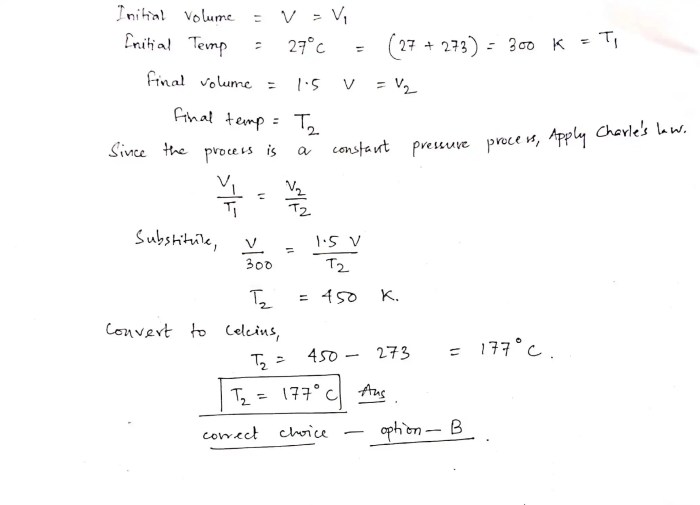 Initial volume = V = V₁
Initial Temp = 27°C = (27 + 273) = 300 K = T₁
Final volume = 1.5 V = V₂
Final temp = T₂
Since the process is a constant pressure process, Apply Charle's law.
V₁/T₁ = V₂/T₂
Substitute, V/300 = 1.5 V/T₂
T₂ = 450 K.
Convert to Celcius,
T₂ = 450 – 273 = 177°C.
T₂ = 177°C Ans.
correct choice – option – B.